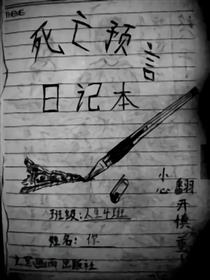 THEME
死亡预言
日记本
小心翻开慎重
班级:人生4班
姓名:你
出版社